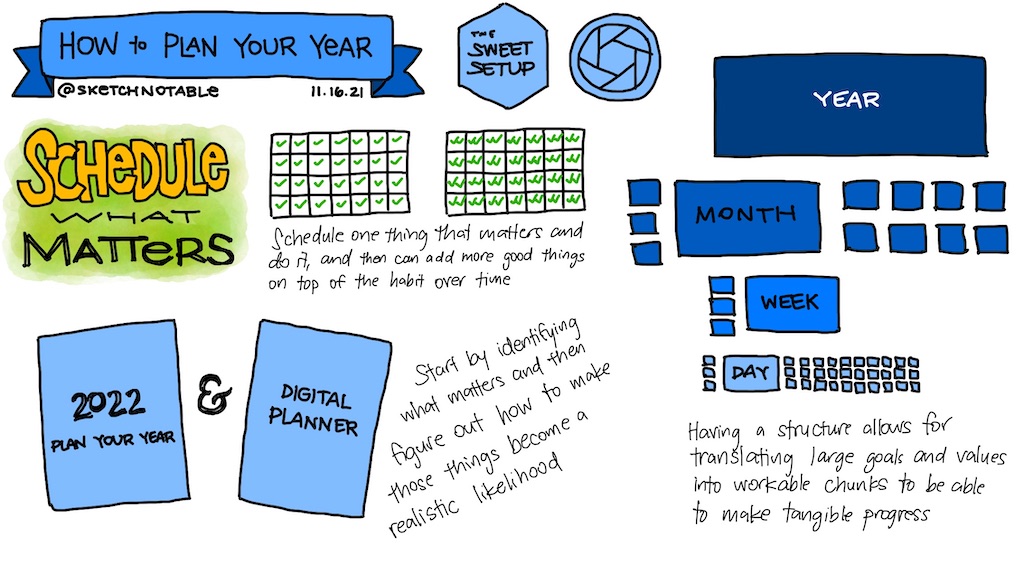 HOW to PLAN YOUR YEAR
@SKETCHNOTABLE 11.16.21
THE
SWEET
SETUP
SCHEDULE
WHAT
MATTERS
Schedule one thing that matters and
do it, and then can add more good things
on top of the habit over time
2022
PLAN YOUR YEAR
&
DIGITAL
PLANNER
Start by identifying
what matters and then
figure out how to make
those things become a
realistic likelihood
YEAR
MONTH
WEEK
DAY
Having a structure allows for
translating large goals and values
into workable chunks to be able
to make tangible progress